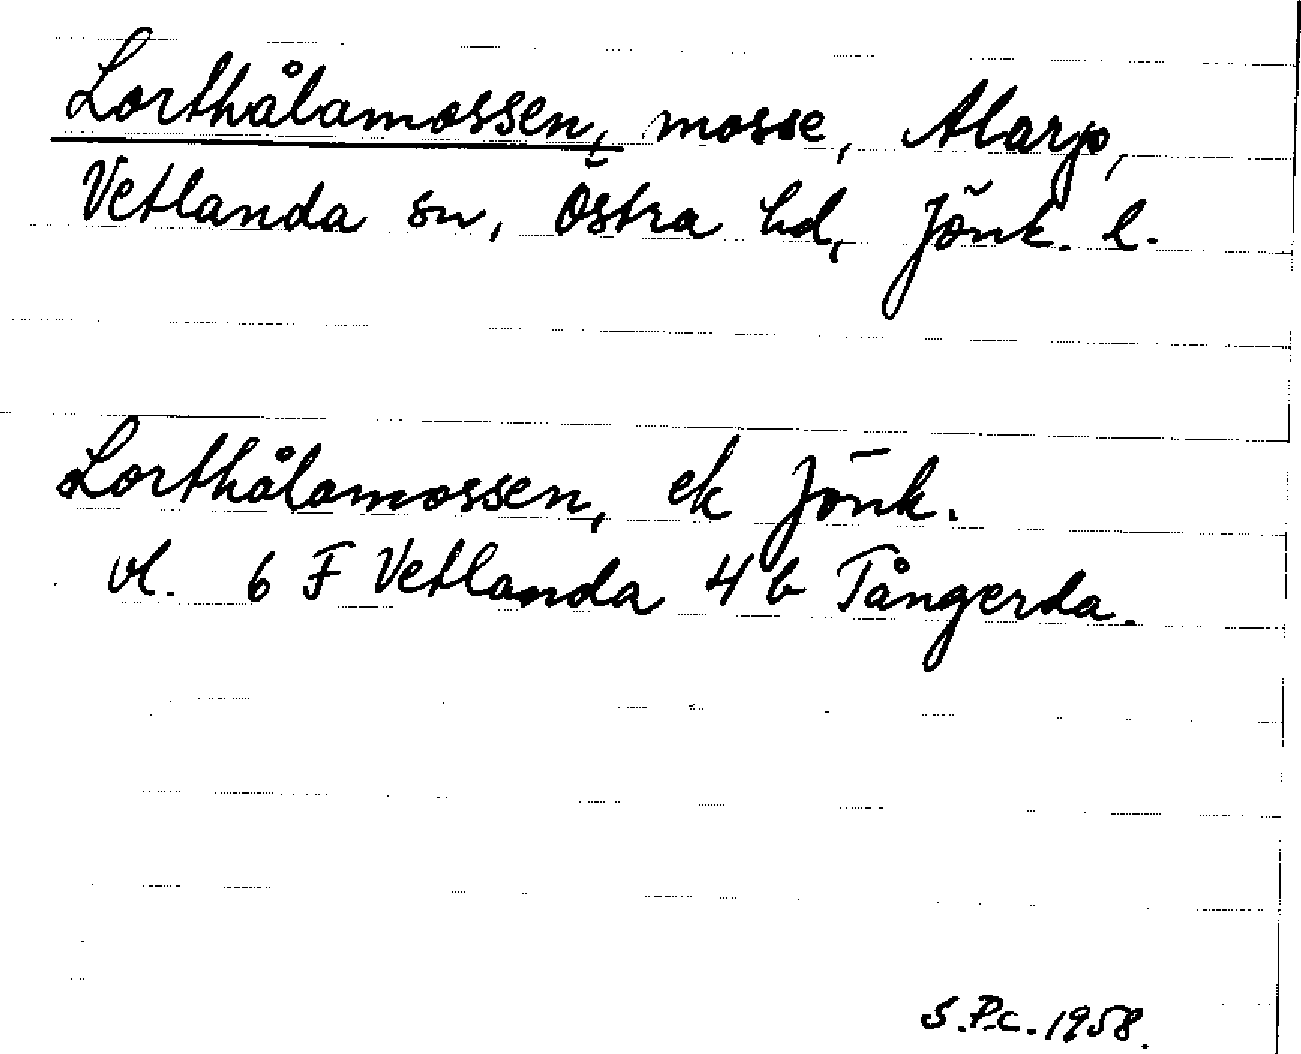 Lorthålamossen, mosse, Alarp,
Vetlanda sn, Östra hd, Jönk. l.
Lorthålamossen, ek Jönk.
vl. 6 F Vetlanda 4 b Tångerda.
S.P.c. 1958.